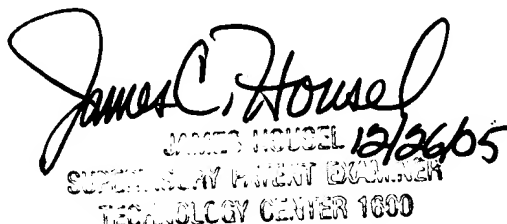 James C. Housel
JAMES HOUSEL 12/26/05
SUPERVISORY PATENT EXAMINER
TECHNOLOGY CENTER 1600